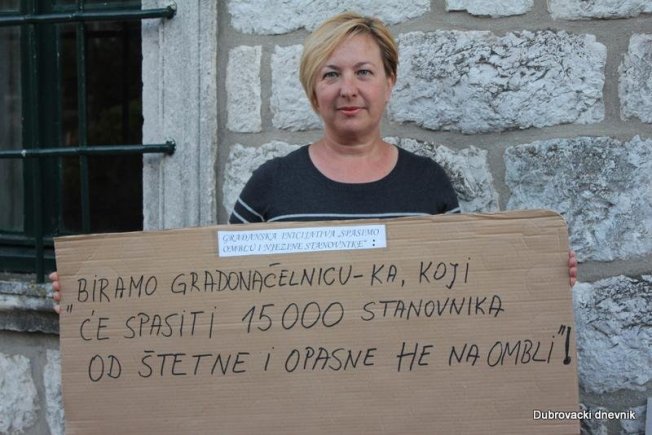 GRAĐANSKA INICIJATIVA „SPASIMO
OMBLU I NJEZINE STANOVNIKE“ :
„BIRAMO GRADONAČELNICU-KA, KOJI
ĆE SPASITI 15000 STANOVNIKA
OD ŠTETNE I OPASNE HE NA OMBLI"!
Dubrovacki dnevnik